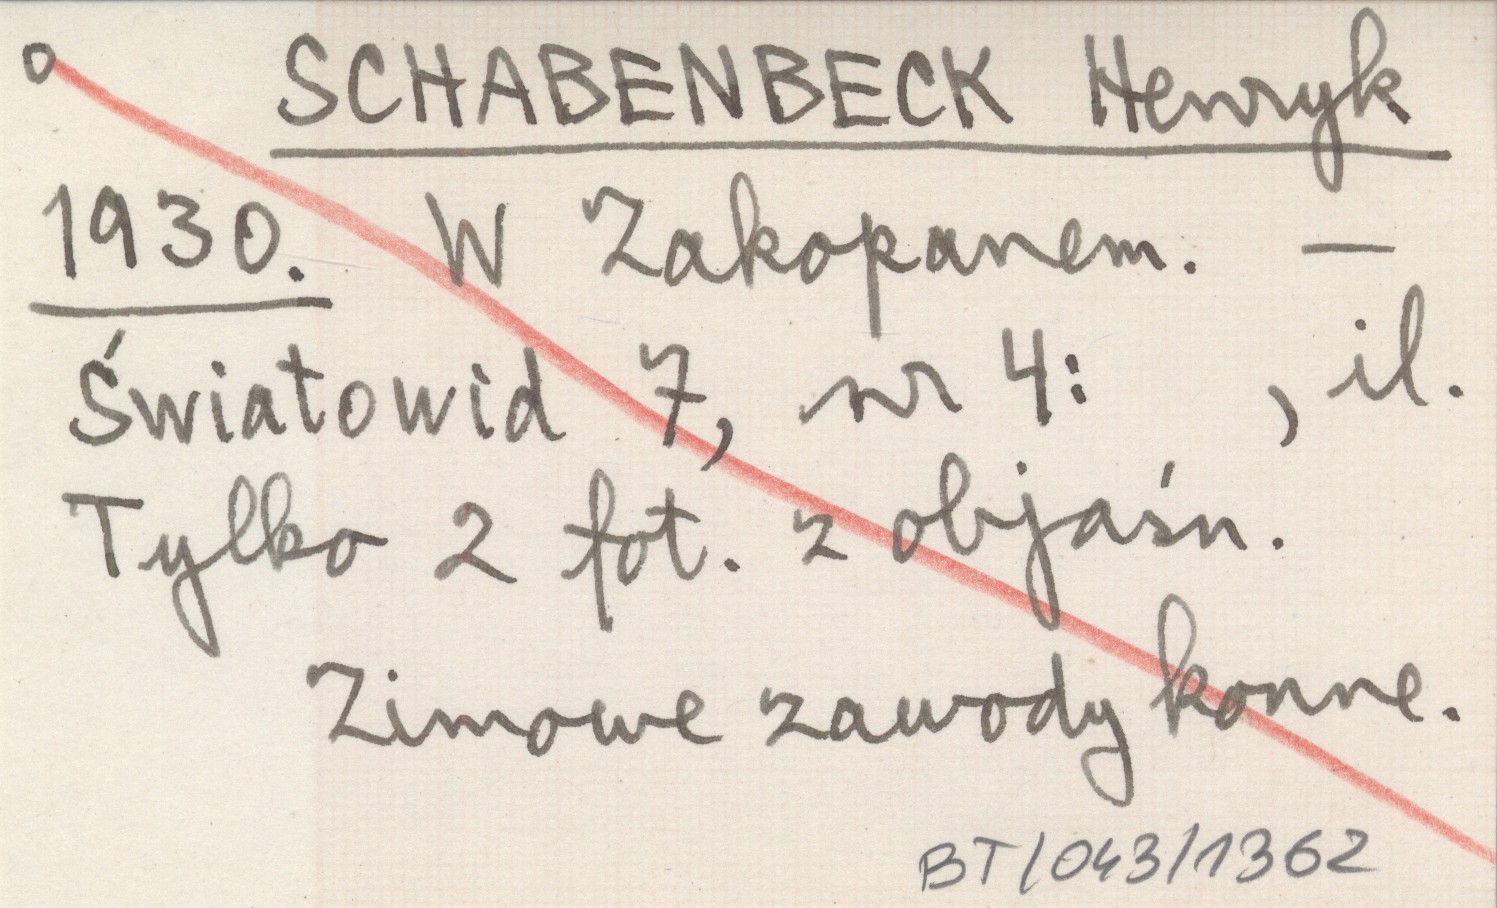 o SCHABENBECK Henryk
1930. W Zakopanem. —
Światowid 7, nr 4: , il.
Tylko 2 fot. z objaśn.
Zimowe zawody konne.
BT/043/1362